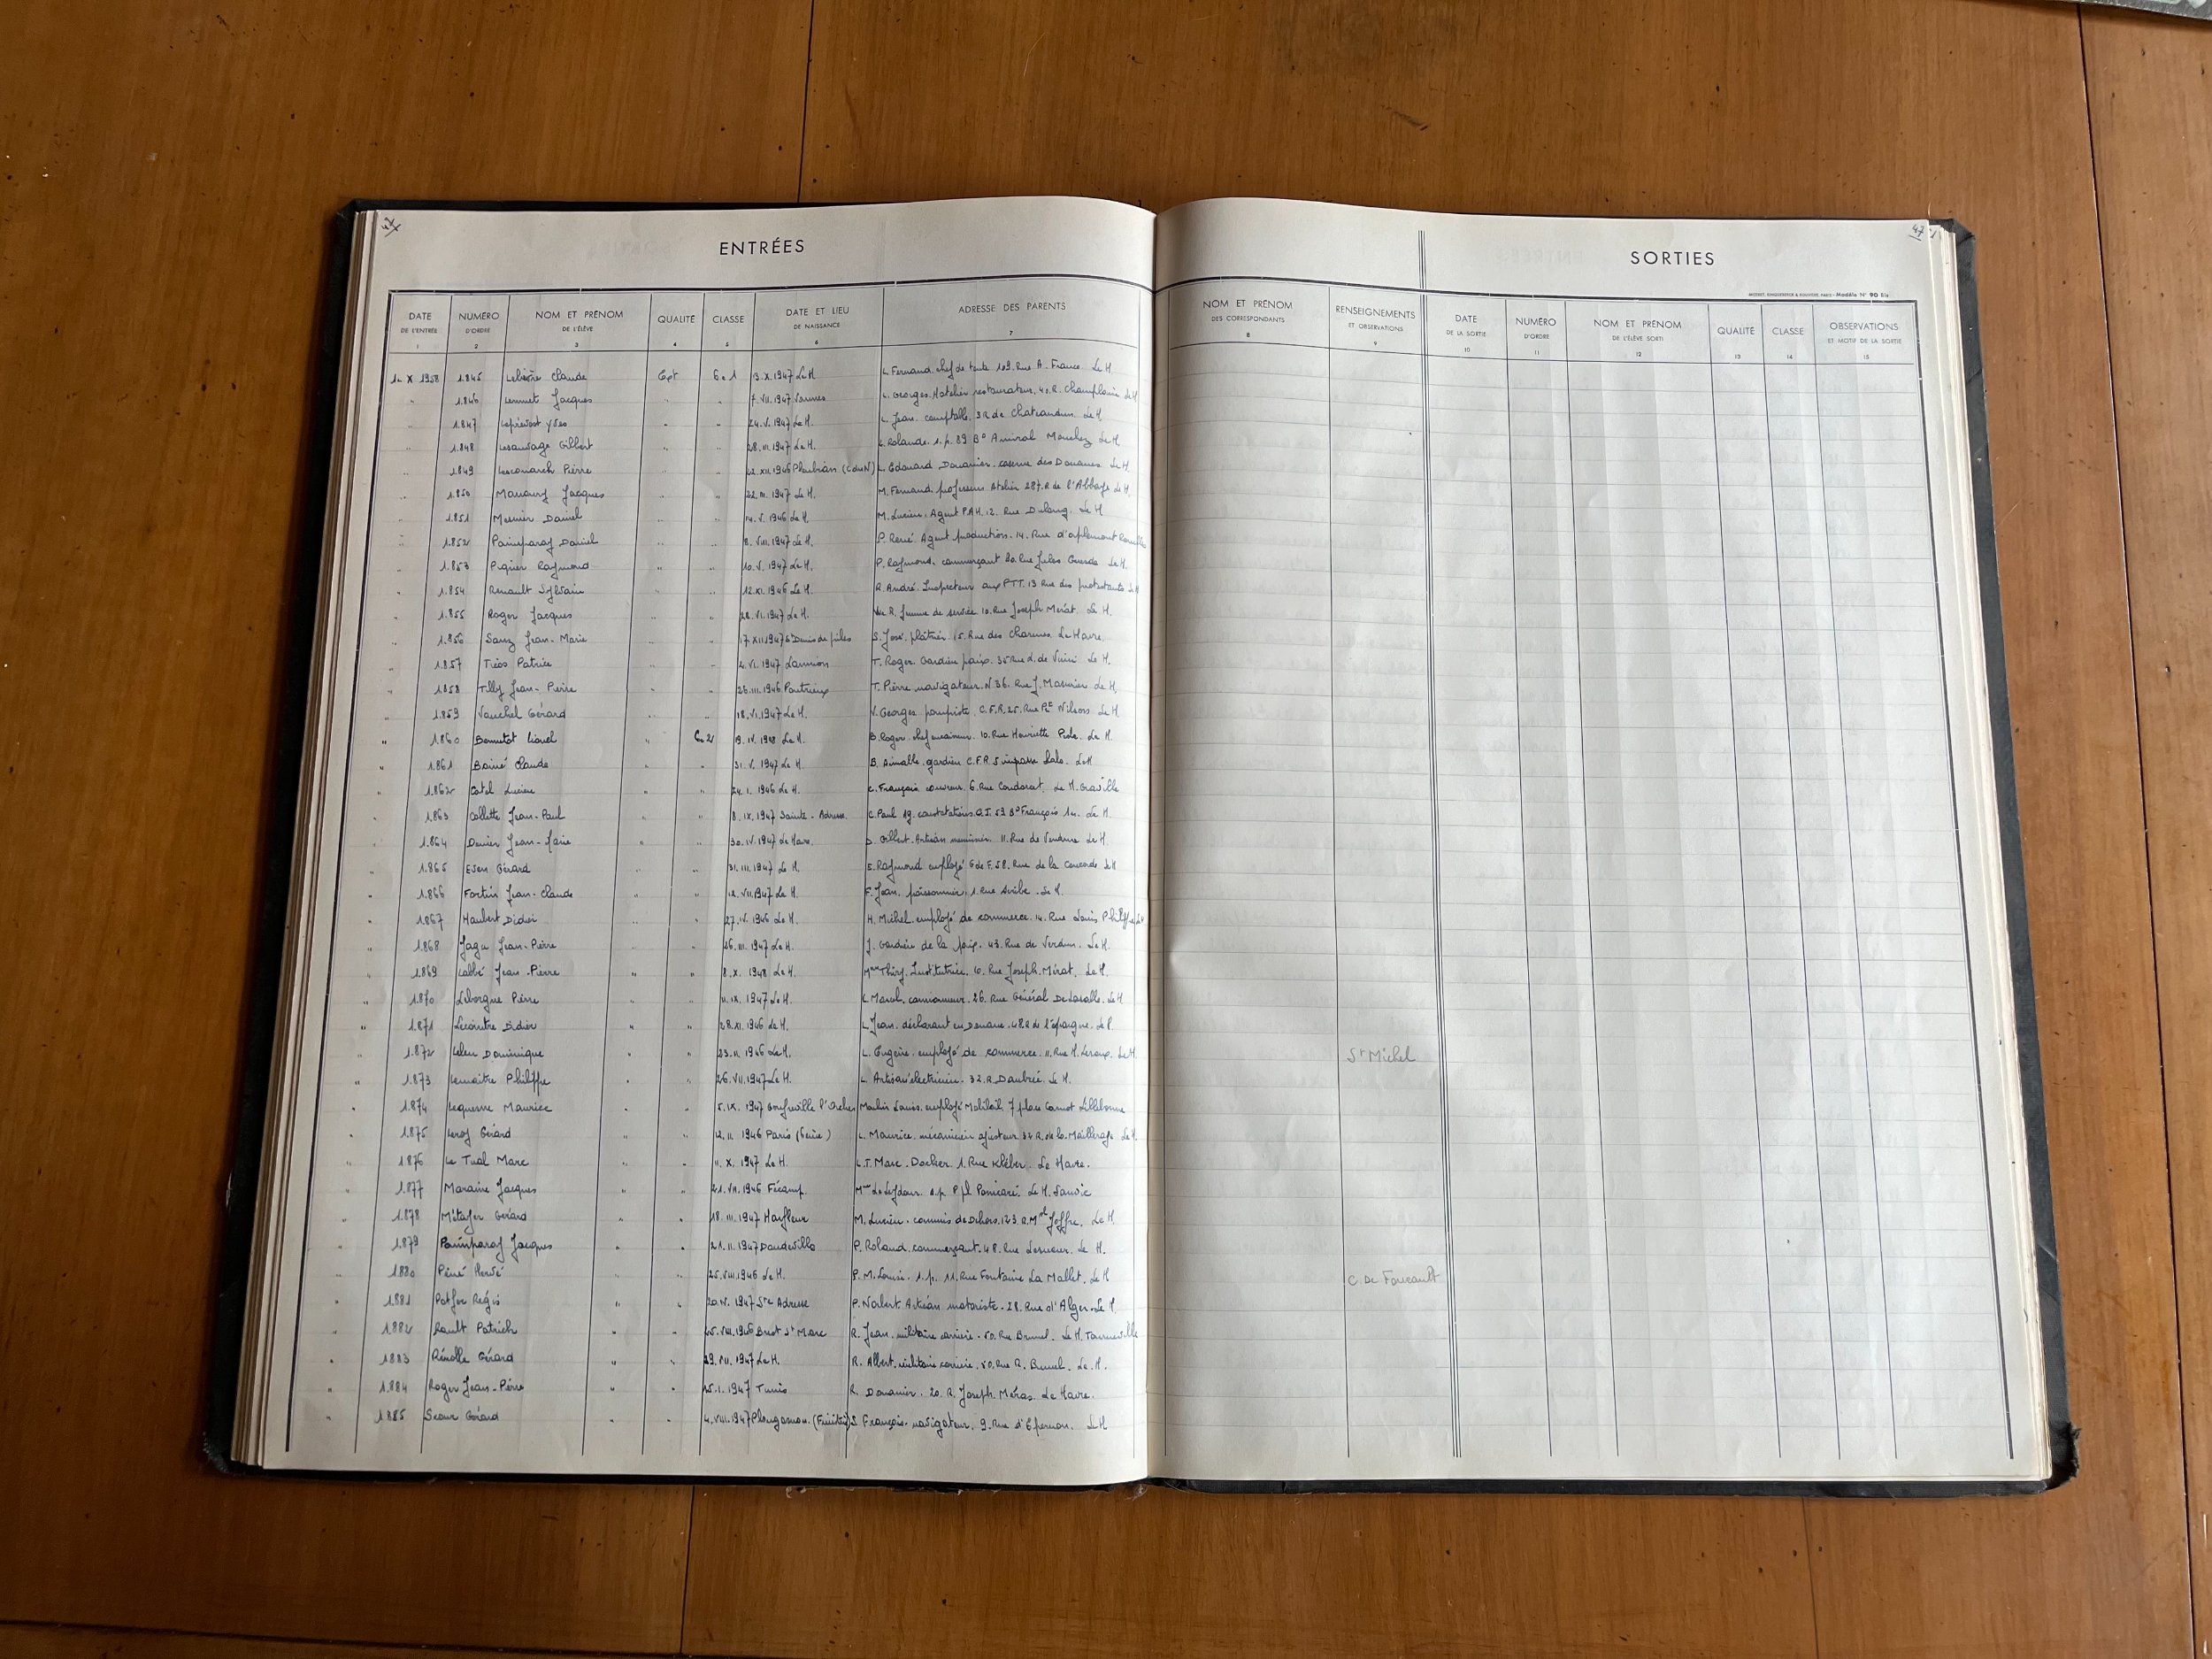 47
ENTRÉES
DATE DE L'ENTRÉE 1 NUMÉRO D'ORDRE 2 NOM ET PRÉNOM DE L'ÉLÈVE 3 QUALITÉ 4 CLASSE 5 DATE ET LIEU DE NAISSANCE 6 ADRESSE DES PARENTS 7
X 1958 1.845 Claude Ept 6e 1 13.X.1947 Le H L. Fernand. chef de 109. Rue A. France. Le H
1.846 Jacques 7.VII.1947 Vannes L. Georges. Hotelier restaurateur. 40.R. Champlain Le H
1.847 Leprevost Yves 24.V.1947 Le H. L. Jean. comptable. 3R de Chateaudun. Le H
1.848 Lesauvage Gilbert 28.III.1947 Le H. L. Rolande. s.p. 89 Bd Amiral Mouchez Le H
1.849 Pierre 22.XII.1946 Ploubrian (C du N) L. Edouard Douanier. caserne des Douanes. Le H.
1.850 Manoury Jacques 22.III.1947 Le H. M. Fernand. professeur. Atelier 287.R de l'Abbaye Le H.
1.851 Mesnier Daniel 14.V.1946 Le H. M. Lucien. Agent P.A.H. 12. Rue Dulong. Le H
1.852 Paimparay Daniel 8.VIII.1947 Le H. P. René. Agent production. 14. Rue d'aplemont
1.853 Pignier Raymond 10.V.1947 Le H. P. Raymond. commerçant 20. Rue Jules Guesde Le H.
1.854 Renault Sylvain 12.XI.1946 Le H. R. André. Inspecteur aux PTT. 13 Rue des protestants Le H
1.855 Roger Jacques 28.VI.1947 Le H. Vve R. femme de service 10. Rue Joseph Mérat. Le H.
1.856 Sanz Jean-Marie 17.XII.1947 St Denis de piles S. José. plâtrier. 15. Rue des Charmes. Le Havre.
1.857 Tréos Patrice 4.VI.1947 Lannion T. Roger. Gardien paix. 35 Rue L. de Vinci Le H.
1.858 Tilly Jean-Pierre 26.III.1946 Pontrieux T. Pierre navigateur. N 36. Rue J. Le H.
1.859 Vauchel Gérard 18.VI.1947 Le H. V. Georges pompiste. C.F.R. 25. Rue Pt Wilson. Le H
1.860 Bennetot Lionel 6e 2 19.IV.1948 Le H. B. Roger. chef 10. Rue Henriette Le H.
1.861 Boiné Claude 31.V.1947 Le H. B. Aimable. gardien C.F.R. 5 impasse Le H
1.862 Catel Lucien 24.I.1946 Le H. C. François couvreur. 6. Rue Condorcet. Le H. Graville
1.863 Collette Jean-Paul 8.IX.1947 Sainte-Adresse. C. Paul 53 Bd François 1er. Le H.
1.864 Denier Jean-Marie 30.IV.1947 Le Havre. D. Gilbert. Artisan menuisier. 11. Rue de Le H.
1.865 Even Gérard 31.III.1947 Le H. E. Raymond employé G de F. 58. Rue de la Concorde Le H
1.866 Fortin Jean-Claude 12.VII.1947 Le H. F. Jean. poissonnier. 1. Rue Scribe. Le H.
1.867 Haubert Didier 27.IV.1946 Le H. H. Michel. employé de commerce. 14. Rue Louis Philippe Le H
1.868 Jagu Jean-Pierre 26.III.1947 Le H. J. Gardien de la paix. 43. Rue de Verdun. Le H.
1.869 Labbé Jean-Pierre 8.X.1948. Le H. Mme Thiry. Institutrice. 10. Rue Joseph. Mérat. Le H.
1.870 Leborgne Pierre 11.IX.1947 Le H. L. Marcel. camionneur. 26. Rue Général De Lasalle. Le H
1.871 Lecointre Didier 28.XI.1946 Le H. L. Jean. déclarant en Douane. 48 R de l'épargne. Le H.
1.872 Leleu Dominique 23.II.1946 Le H. L. Eugène. employé de commerce. 11. Rue H. Leroux. Le H.
1.873 Lemaitre Philippe 26.VII.1947 Le H. L. Artisan électricien. 32.R. Daubrée. Le H.
1.874 Lequesne Maurice 5.IX.1947 Gonfreville l'Orcher Louis. employé Mobiloil 7 place Carnot Lillebonne
1.875 Leroy Gérard 12.II.1946 Paris (6ème) L. Maurice. mécanicien ajusteur. 34 R. de la Mailleraye. Le H.
1.876 Le Tual Marc 11.X.1947 Le H. L.T. Marc. Docker. 1. Rue Kléber. Le Havre.
1.877 Maraine Jacques 21.VII.1946 Fécamp. Mme s.p. P pl Poincaré. Le H. Sanvic
1.878 Métayer Gérard 18.III.1947 Harfleur M. Lucien. commis de dehors. 123. R. Mal Joffre. Le H
1.879 Paimparay Jacques 21.II.1947 Doudeville P. Roland. commerçant. 48. Rue Lesueur. Le H.
1.880 Péné Hervé 25.VIII.1946 Le H. P. M. Louise. s.p. 11. Rue Fontaine La Mallet. Le H
1.881 Potfer Régis 20.V.1947 Ste Adresse P. Norbert Artisan motoriste. 28. Rue d'Alger. Le H.
1.882 Rault Patrick 25.VIII.1946 Brest St Marc R. Jean. militaire carrière. 50. Rue Brunel. Le H. Tourneville
1.883 Gérard 29.VII.1947 Le H. R. Albert. militaire carrière. 50. Rue Brunel. Le H.
1.884 Roger Jean-Pierre 15.I.1947 Tunis R. Douanier. 20. R. Joseph. Méras. Le Havre.
1.885 Scour Gérard 4.VIII.1947 Plougasnou. (Finistère) S. François. navigateur. 9. Rue d'Epernon. Le H
47
SORTIES
Modèle N° 90 Bis
NOM ET PRÉNOM DES CORRESPONDANTS 8 RENSEIGNEMENTS ET OBSERVATIONS 9 DATE DE LA SORTIE 10 NUMÉRO D'ORDRE 11 NOM ET PRÉNOM DE L'ÉLÈVE SORTI 12 QUALITÉ 13 CLASSE 14 OBSERVATIONS ET MOTIF DE LA SORTIE 15
St Michel
C. De Foucault